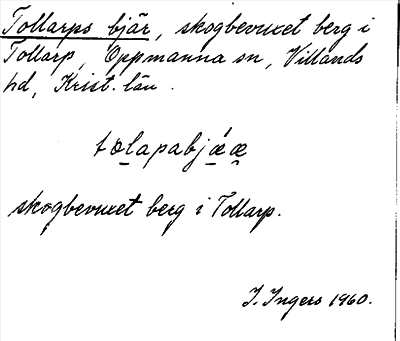 Tollarps bjär, skogbevuxet berg i
Tollarp, Oppmanna sn, Villands
hd, Krist. län.
tɷlapabjǽæ
skogbevuxet berg i Tollarp.
I. Ingers 1960.